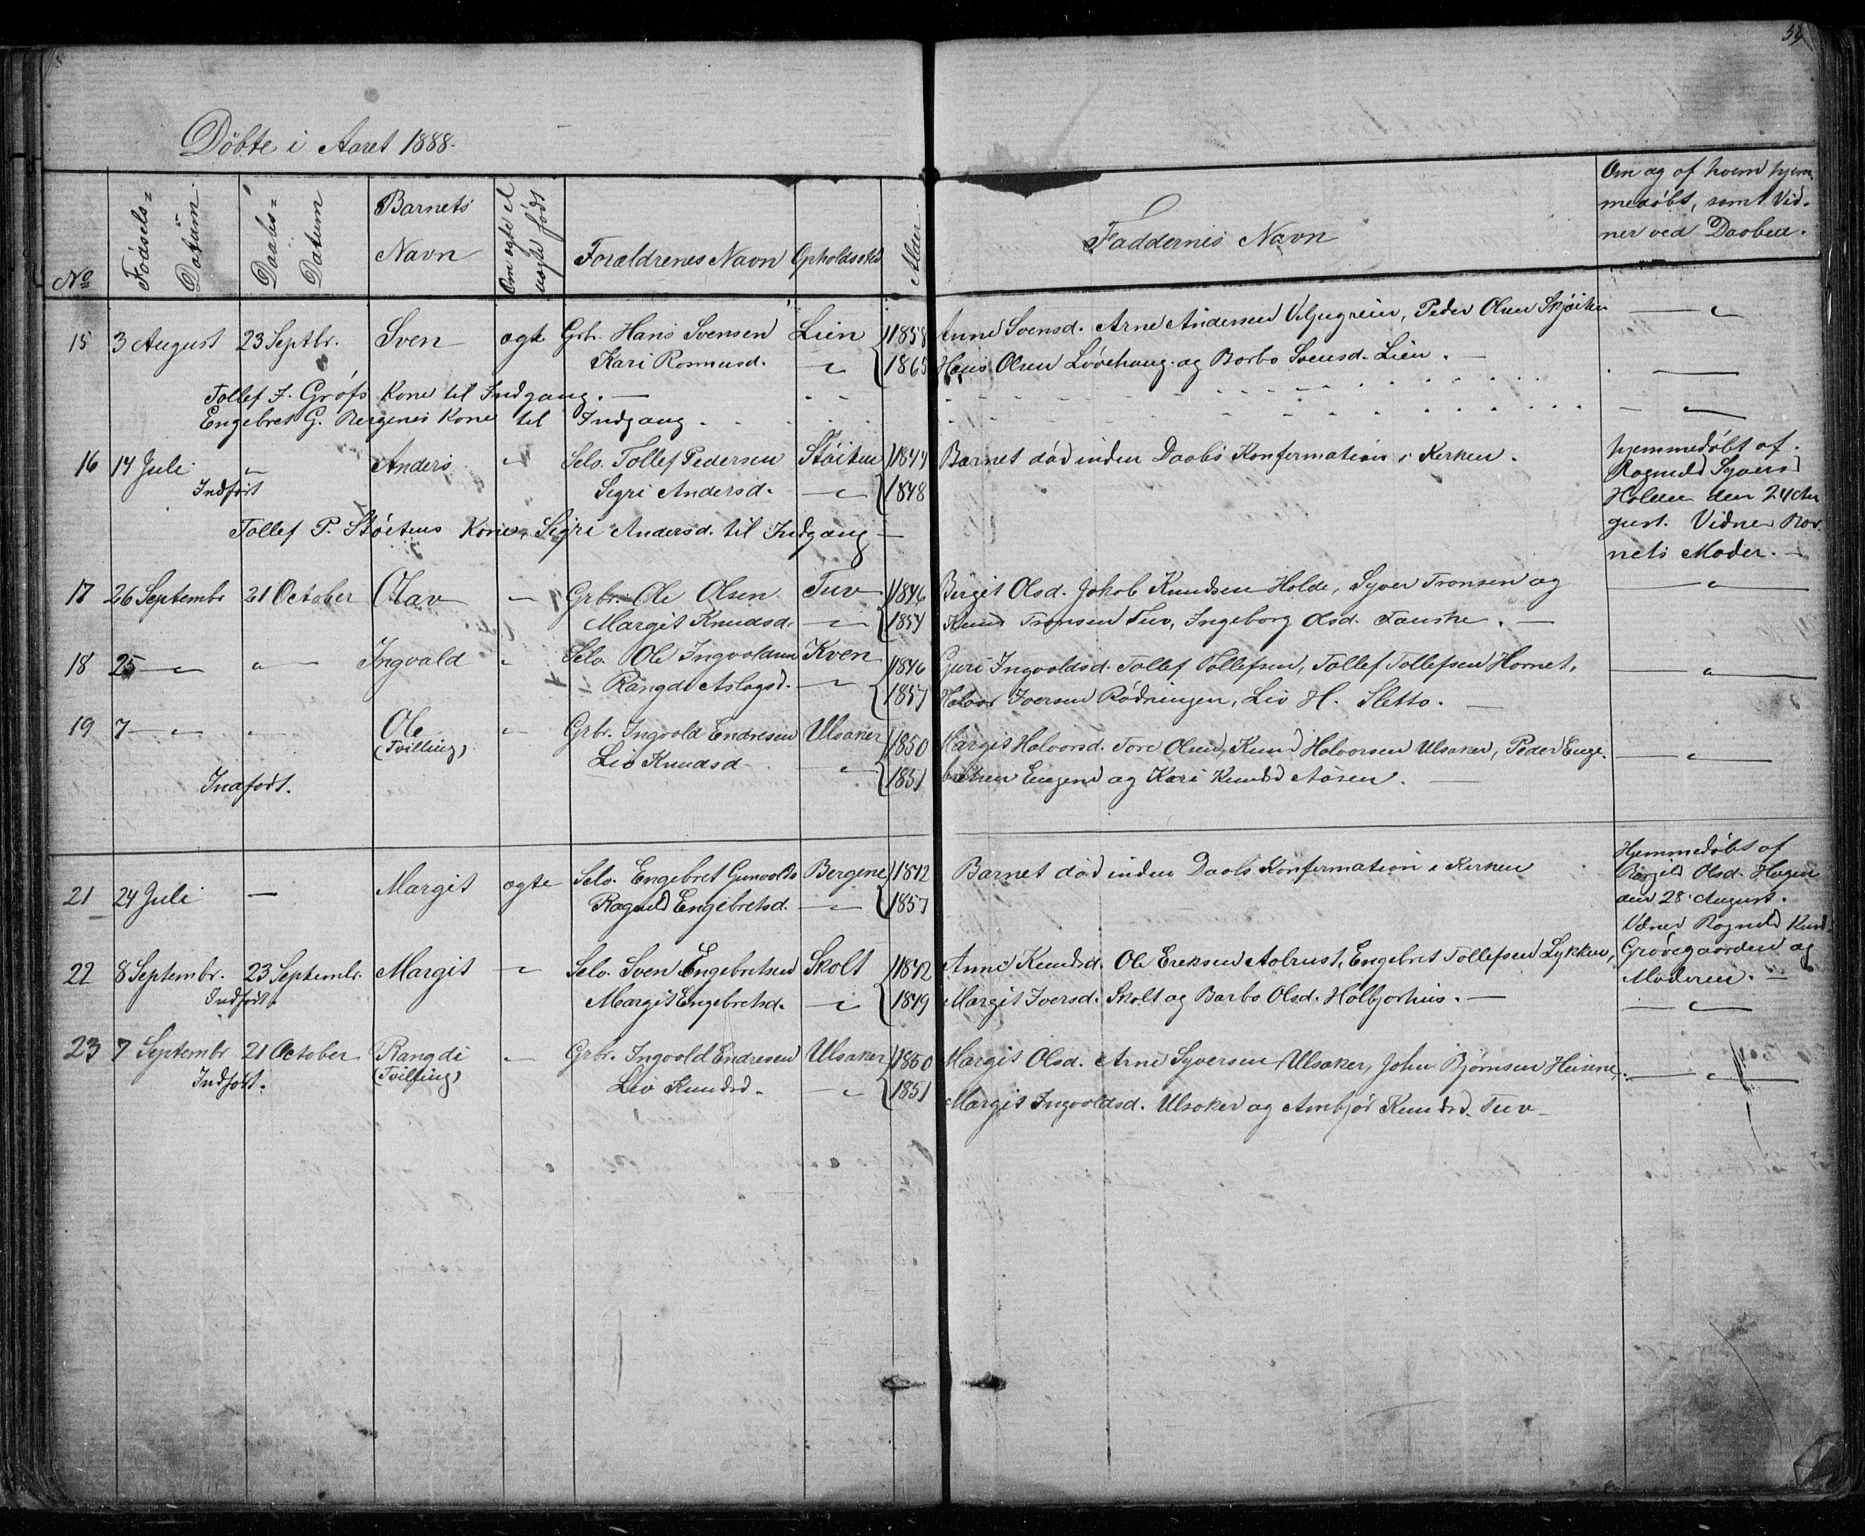 59
Döbte i Aaret 1888.
No
Fødsels= Datum.
Daabs= Datum
Barnets Navn
Om ægte el uægte født
Forældrenes Navn
Opholdssted
Alder.
Faddernes Navn
Om og af hvem hjem-
medøbt, samt Vid-
ner ved Daaben.
15 3 August 23 Septbr. Sven ægte Grb. Hans Svensen Lien 1858 Anne Svensd. Arne Andersen Peder Olsen
Kari Rasmusd. 〃 1865 Hans Olsen og Barbo Svensd. Lien. —
Tollef J. Grøfs Kone til Indgang. —
Engebret G. Bergenes Kone til Indgang
16 14 Juli 〃 Anders 〃 Selv. Tollef Pedersen Støiten 1844 Barnet død inden Daabs Konfermation i Kirken.
Indført Sigri Andersd. 〃 1848
hjemmedøbt af
Ragnild Syvers
Holden den 24 Au
gust. Vidne Bar
nets Moder. —
Tollef P. Støitens Kone, Sigri Andersd. til Indgang —
17 26 Septembr 21 October Olav 〃 Grbr. Ole Olsen Tuv 1846 Birgit Olsd. Jakob Knudsen Holde, Syver Tronsen og
Margit Knudsd. 〃 1854 Knud Tronsen Tuv, Ingeborg Olsd. Fauske. —
18 25 〃 〃 Ingvald 〃 Selv. Ole Ingvaldsen Kven 1846 Guri Ingvaldsd. Tollef Tollefsen, Tollef Tollefsen Hornet,
Rangdi Aslagsd. 〃 1857 Halvor Iversen Rødningen, Liv H. Sletto. —
19 7 〃 〃 Ole 〃 Grbr. Ingvald Endresen Ulsaker 1850 Margit Halvorsd. Tore Olsen, Knud Halvorsen Ulsaker, Peder Enge-
(Tvilling) Liv Knudsd 〃 1851 bretsen og Kari Knudsd Aasen. —
Indført.
21 24 Juli — Margit ægte Selv. Engebret Gunvolds Bergene 1842 Barnet død inden Daabs Konfermation i Kirken
Ragnild Engebretsd. 〃 1857
Hjemmedøbt af
Olsd. Hagen
den 28 August.
Vidner Ragnild Knud
Grøvegaarden og
Moderen. —
22 8 Septembr. 23 Septembr. Margit 〃 Selv. Sven Engebretsen Skolt 1842 Anne Knudsd. Ole Eriksen Aalrust, Engebret Tollefsen Lykken,
Indført. Margit Engebretsd. 〃 1849 Margit Iversd. Skolt og Barbo Olsd. Halbjorhus. —
23 7 Septembr 21 October Rangdi 〃 Grbr. Ingvald Endresen Ulsaker 1850 Margit Olsd. Arne Syversen Ulsaker, John Bjørnsen Heisene,
Indført. (Tvilling) Liv Knudsd. 〃 1851 Margit Ingvaldsd. Ulsaker og Ambjør Knudsd. Tuv —